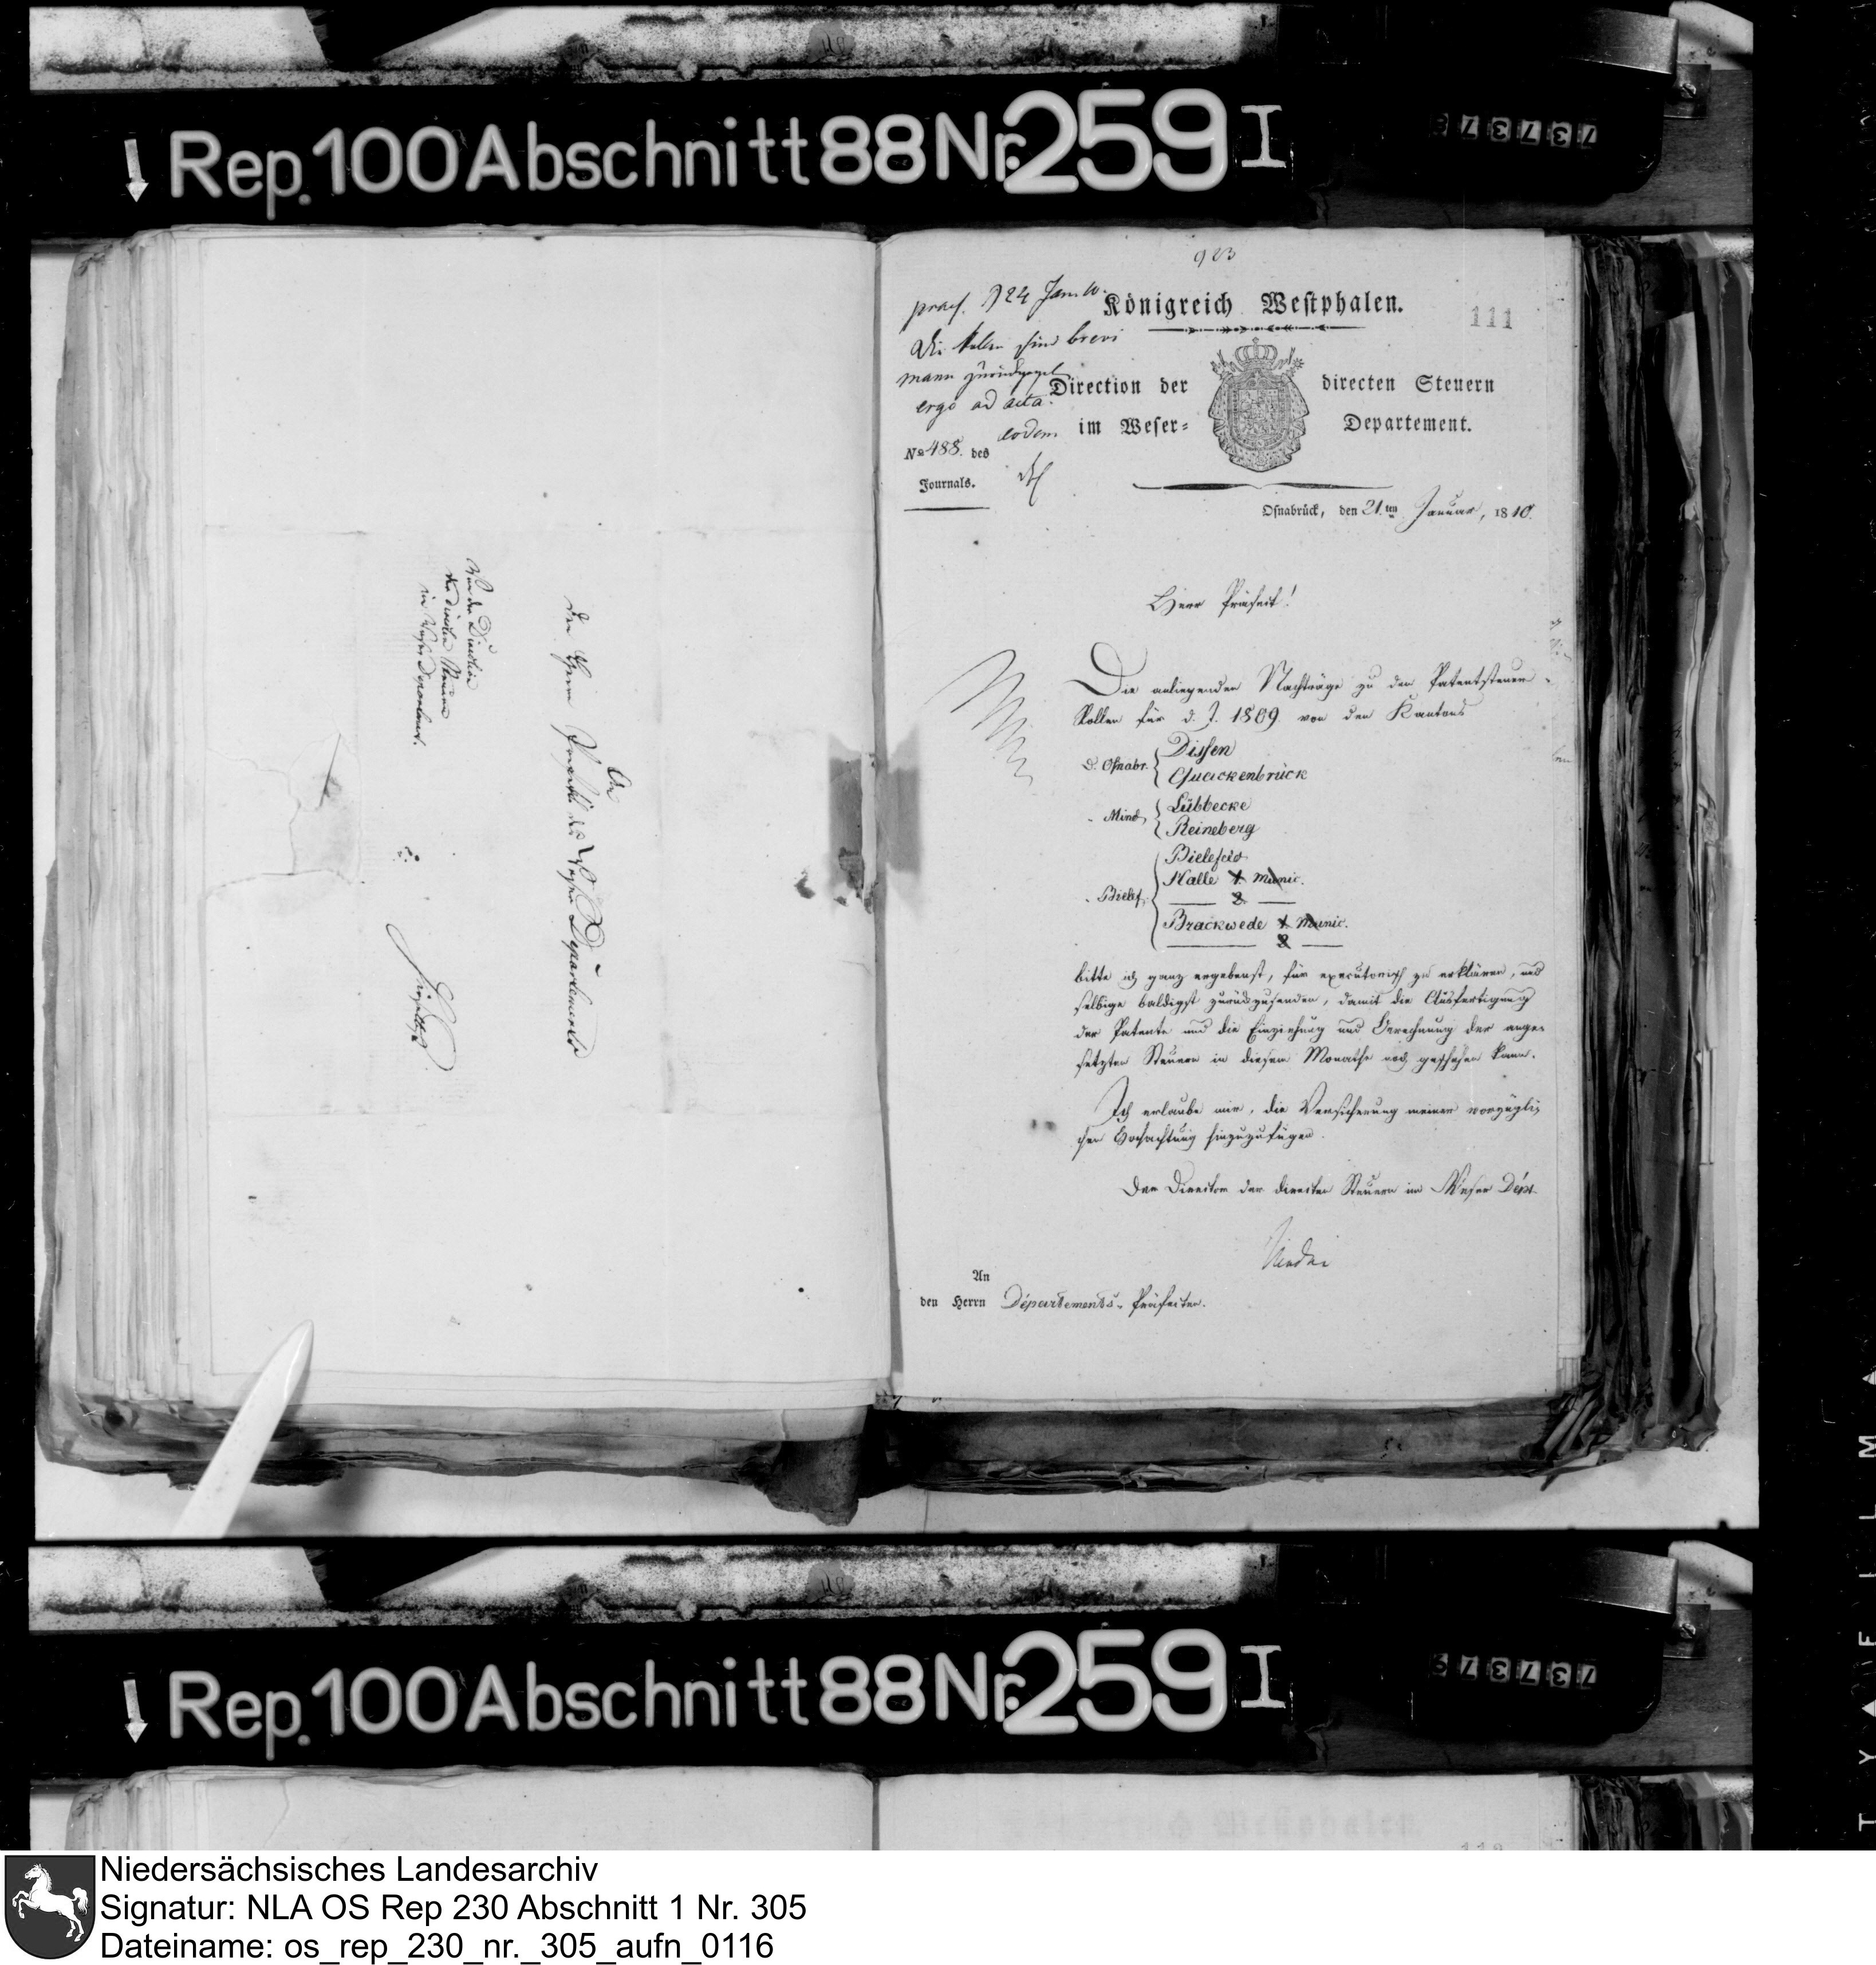 Rep. 100 Abschnitt 88 Nr. 259 I
737373
An
den Herrn Präfekt des Weser Departements
Von der Direction
der directen Steuern
im Weser Departement.
923
praes. d 24 Jan. 10.
Königreich Westphalen.
111
Die Rollen sind brevi
manu zurückgegeb.
ergo ad acta.
eodem
Direction der directen Steuern
im Weser- Departement.
No 488. des
Journals.
Osnabrück, den 21.ten Januar, 1810.
Herr Präfect!
Die anliegenden Nachträge zu den Patentsteuer-
Rollen für d. J. 1809. von den Kantons
D. Osnabr. Dissen
Quackenbrück
- Mind. Lübbecke
Reineberg
- Bielef. Bielefeld
Halle 1. Munic.
2.
Brackwede 1. Munic.
2
bitte ich ganz ergebenst, für executorisch zu erklären, und
selbige baldigst zurückzusenden, damit die Ausfertigung
der Patente und die Einziehung und Berechnung der ange-
setzten Steuern in diesem Monathe noch geschehen kann.
Ich erlaube mir, die Versicherung meiner vorzügli-
chen Hochachtung hinzuzufügen.
Der Director der directen Steuern im Weser Dépt.
An
den Herrn Départements-Präfecten.
Rep. 100 Abschnitt 88 Nr. 259 I
737379
Niedersächsisches Landesarchiv
Signatur: NLA OS Rep 230 Abschnitt 1 Nr. 305
Dateiname: os_rep_230_nr._305_aufn_0116